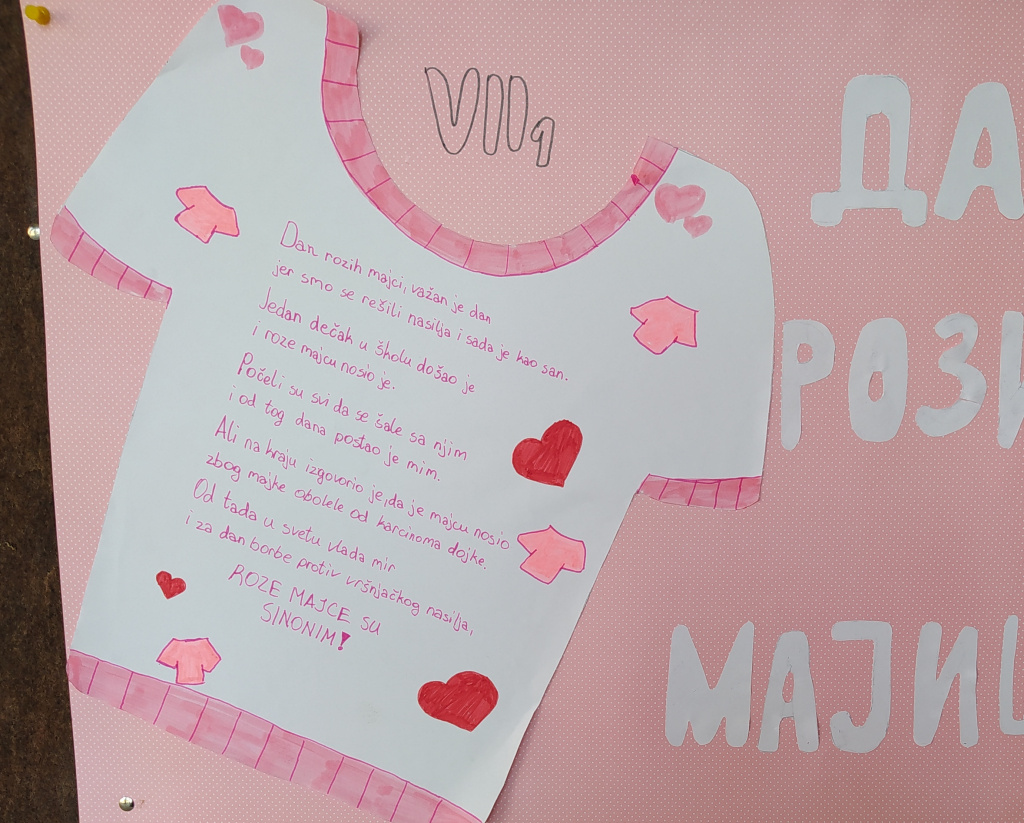 VII1
Dan rozih majci, važan je dan
jer smo se rešili nasilja i sada je kao san.
Jedan dečak u školu došao je
i roze majcu nosio je.
Počeli su svi da se šale sa njim
i od tog dana postao je mim.
Ali na kraju izgovorio je, da je majcu nosio
zbog majke obolele od karcinoma dojke.
Od tada u svetu vlada mir
i za dan borbe protiv vršnjačkog nasilja,
ROZE MAJCE SU
SINONIM!
ДА
РОЗИ
МАЈИ